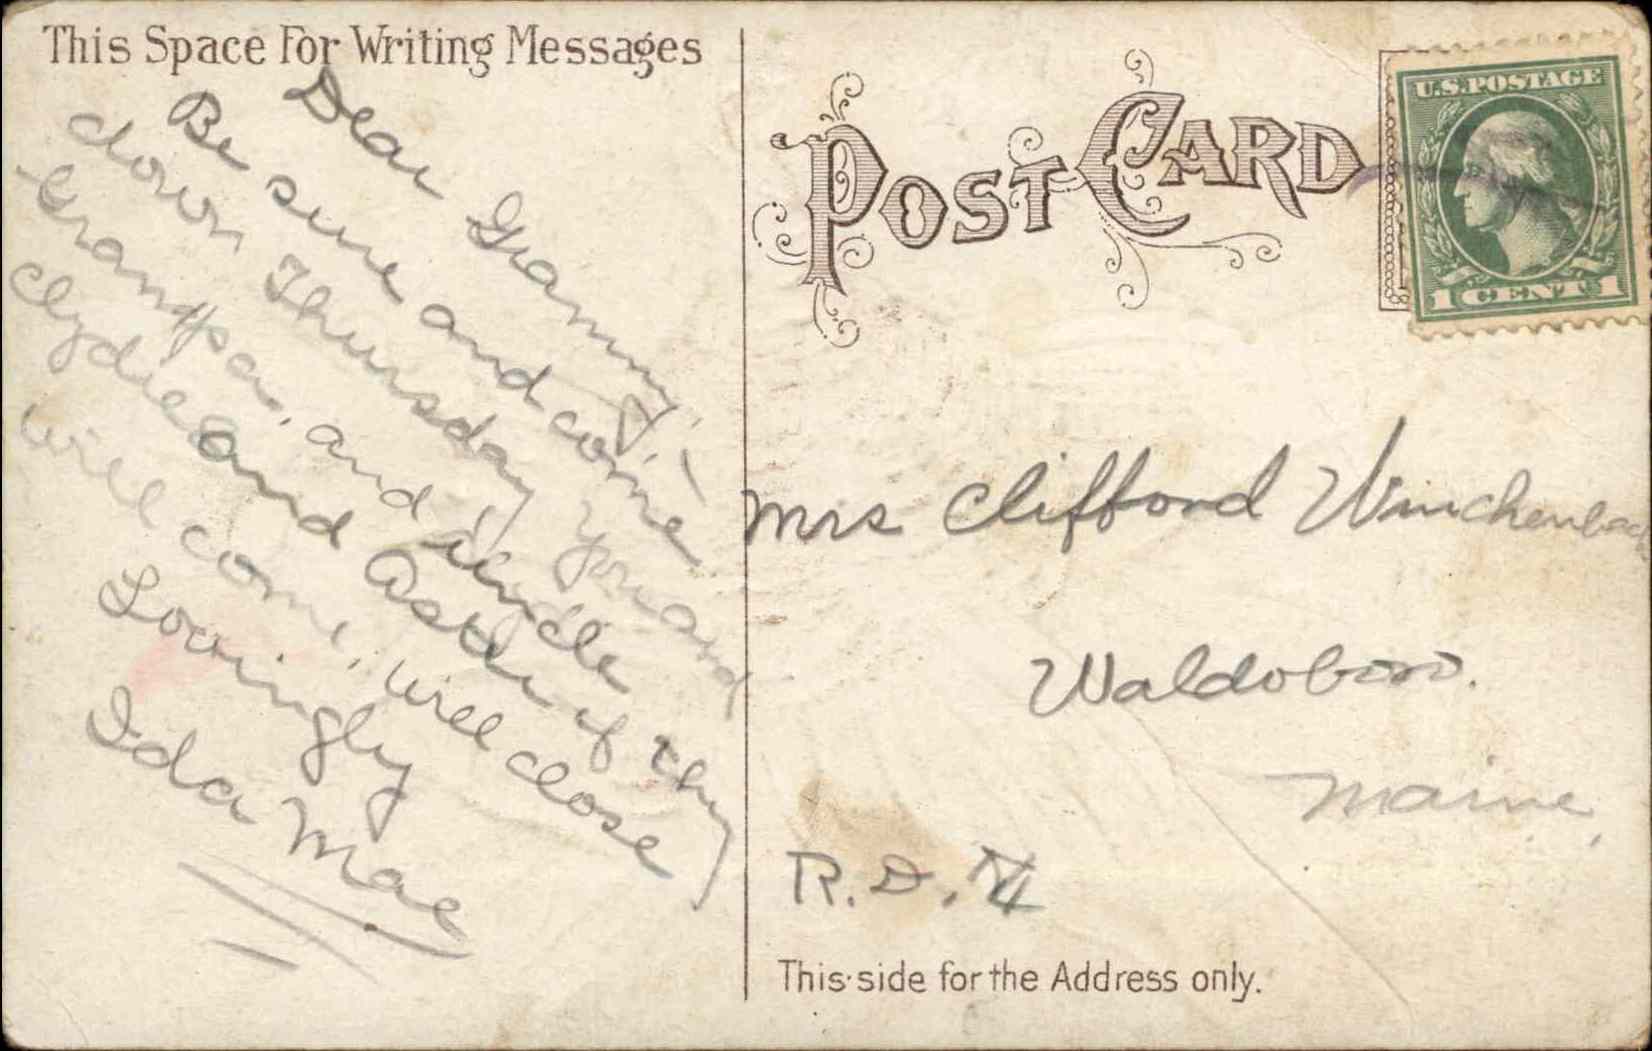 This Space For Writing Messages
Dear Grammy,
Be sure and come
down Thursday you and
Grampa, and
Clyde and if they
will come, will close
Lovingly
Ida Mae
POST CARD
U.S. POSTAGE
1 CENT 1
Mrs Clifford Winchenbach
Waldoboro.
Maine,
R. D.
This side for the Address only.